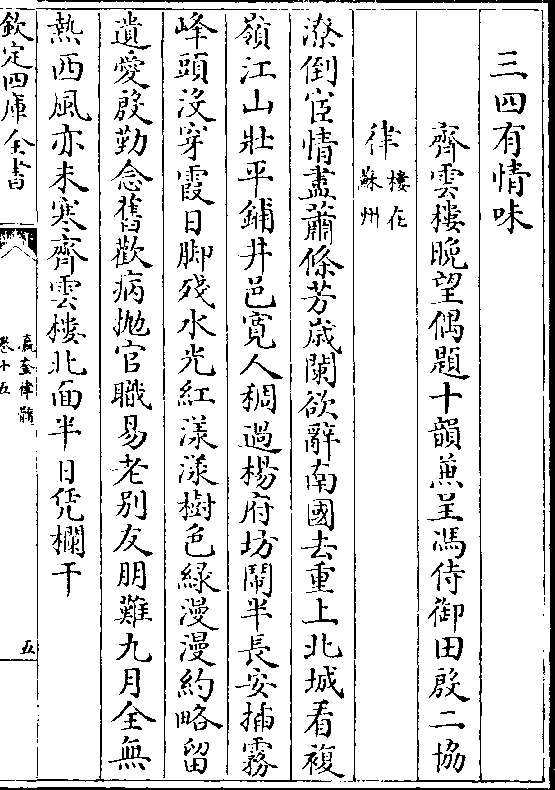 三四有情味
齊雲樓晚望偶題十韻兼呈馮侍御田殷二協
律樓在蘇州
潦倒宦情盡蕭條芳歳闌欲辭南國去重上北城看複
嶺江山壯平鋪井邑寛人稠過楊府坊鬧半長安揷霧
峰頭沒穿霞日脚殘水光紅漾漾樹色緑漫漫約略留
遺愛殷勤念舊歡病抛官職易老别友朋難九月全無
熱西風亦未寒齊雲樓北面半日凭欄干
欽定四庫全書
瀛奎律髓
卷十五
五